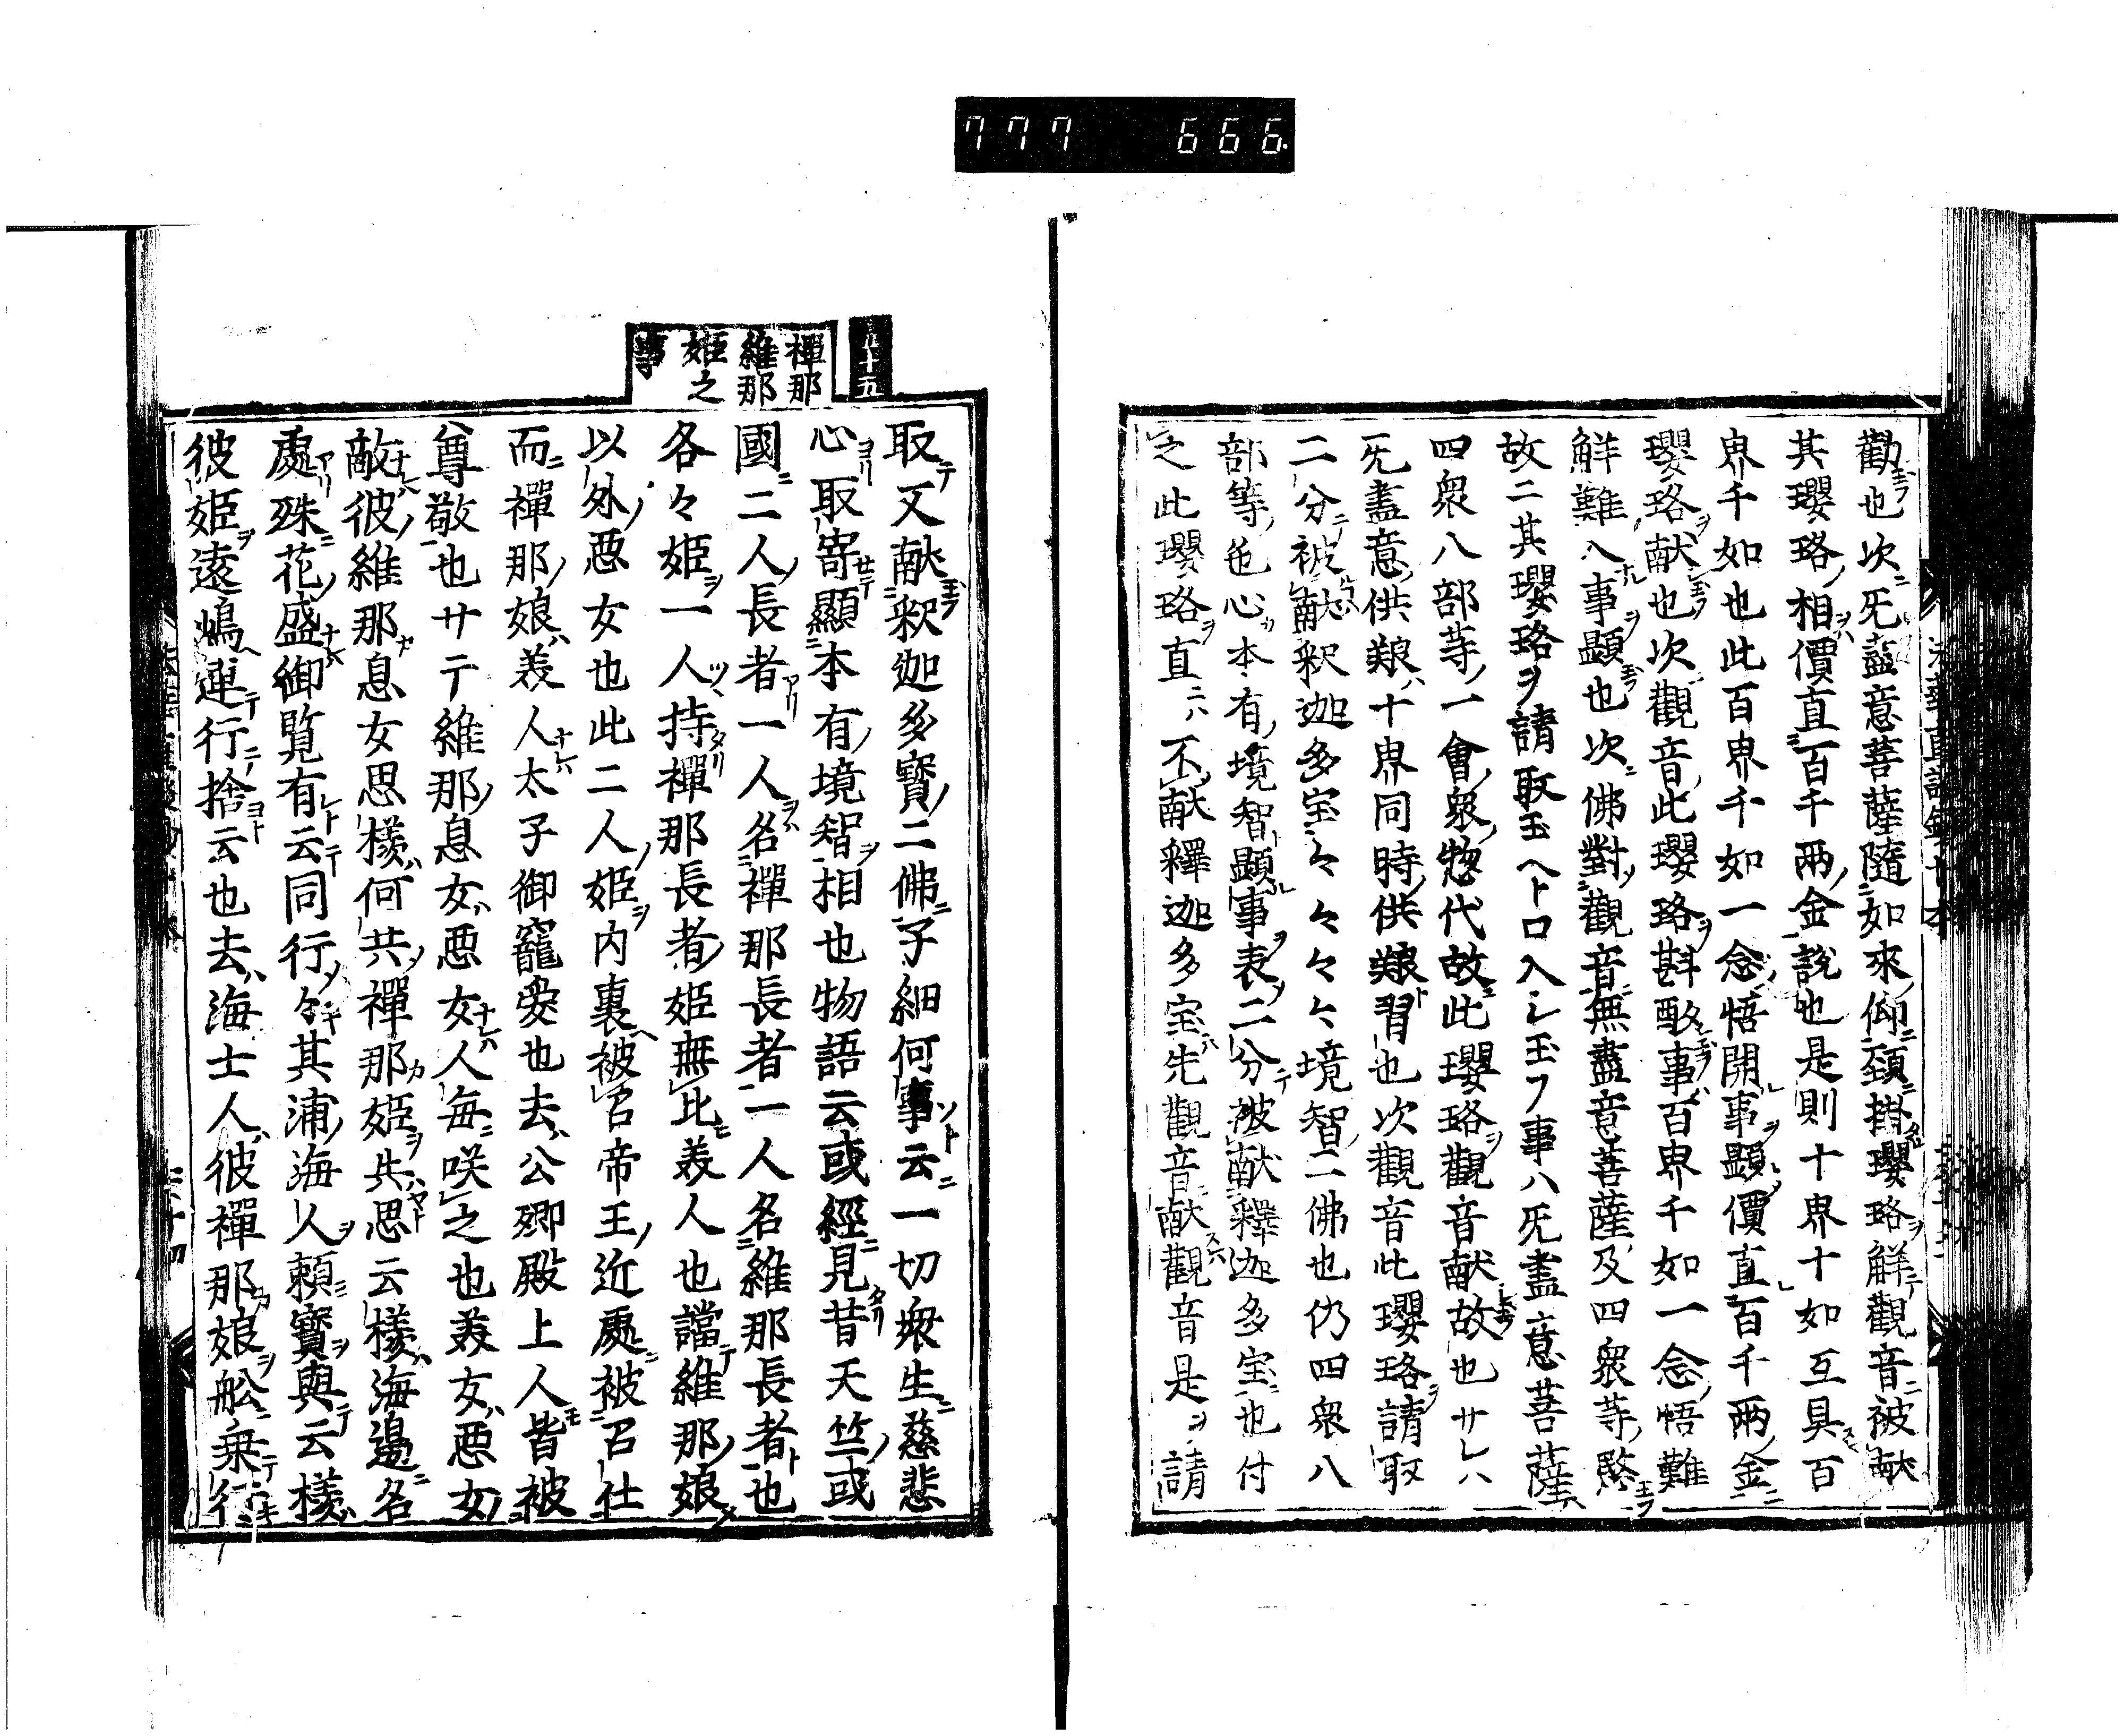 777 666
勸也次旡盡意菩薩隨如來仰頚掛瓔珞解觀音被献
其瓔珞相價直百千兩金説也是則十界十如互具百
界千如也此百界千如一念悟開事顕價直百千兩金
瓔珞献也次觀音此瓔珞斟酌事百界千如一念悟難
解難入事顕也次佛對觀音無盡意菩薩及四衆等愍
故ニ其瓔珞ヲ請取玉ヘト口入シ玉フ事ハ旡盡意菩薩
四衆八部等一會衆惣代故此瓔珞觀音献故也サレハ
旡盡意供養十界同時供養習也次觀音此瓔珞請取
二分被献釈迦多宝々々々々境智二佛也仍四衆八
部等色心本有境智顕事表二分被献釋迦多宝也付
之此瓔珞直ニハ不献釋迦多宝先觀音献觀音是ヲ請
五十五
禪那
維那
姫之
事
取又献釈迦多寳二佛子細何事云一切衆生慈悲
心取寄顯本有境智相也物語云或經見昔天竺或
國二人長者一人名禪那長者一人名維那長者也
各々姫一人持禪那長者姫無比美人也譡維那娘
以外悪女也此二人姫内裏被召帝王近處被召仕
而禪那娘美人太子御寵愛也去公卿殿上人皆被
尊敬也サテ維那息女悪女人毎咲之也美女悪女
敵彼維那息女思樣何共禪那姫失思云樣海邊名
處殊花盛御覧有云同行々其浦海人頼寳與云樣
彼姫遠嶋運行捨云也去海士人彼禪那娘舩乗行